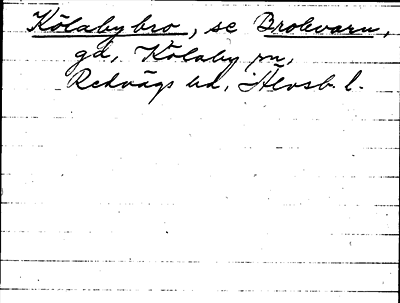 Kölabybro, se Brokvarn,
gd, Kölaby sn,
Redvägs hd, Älvsb. l.